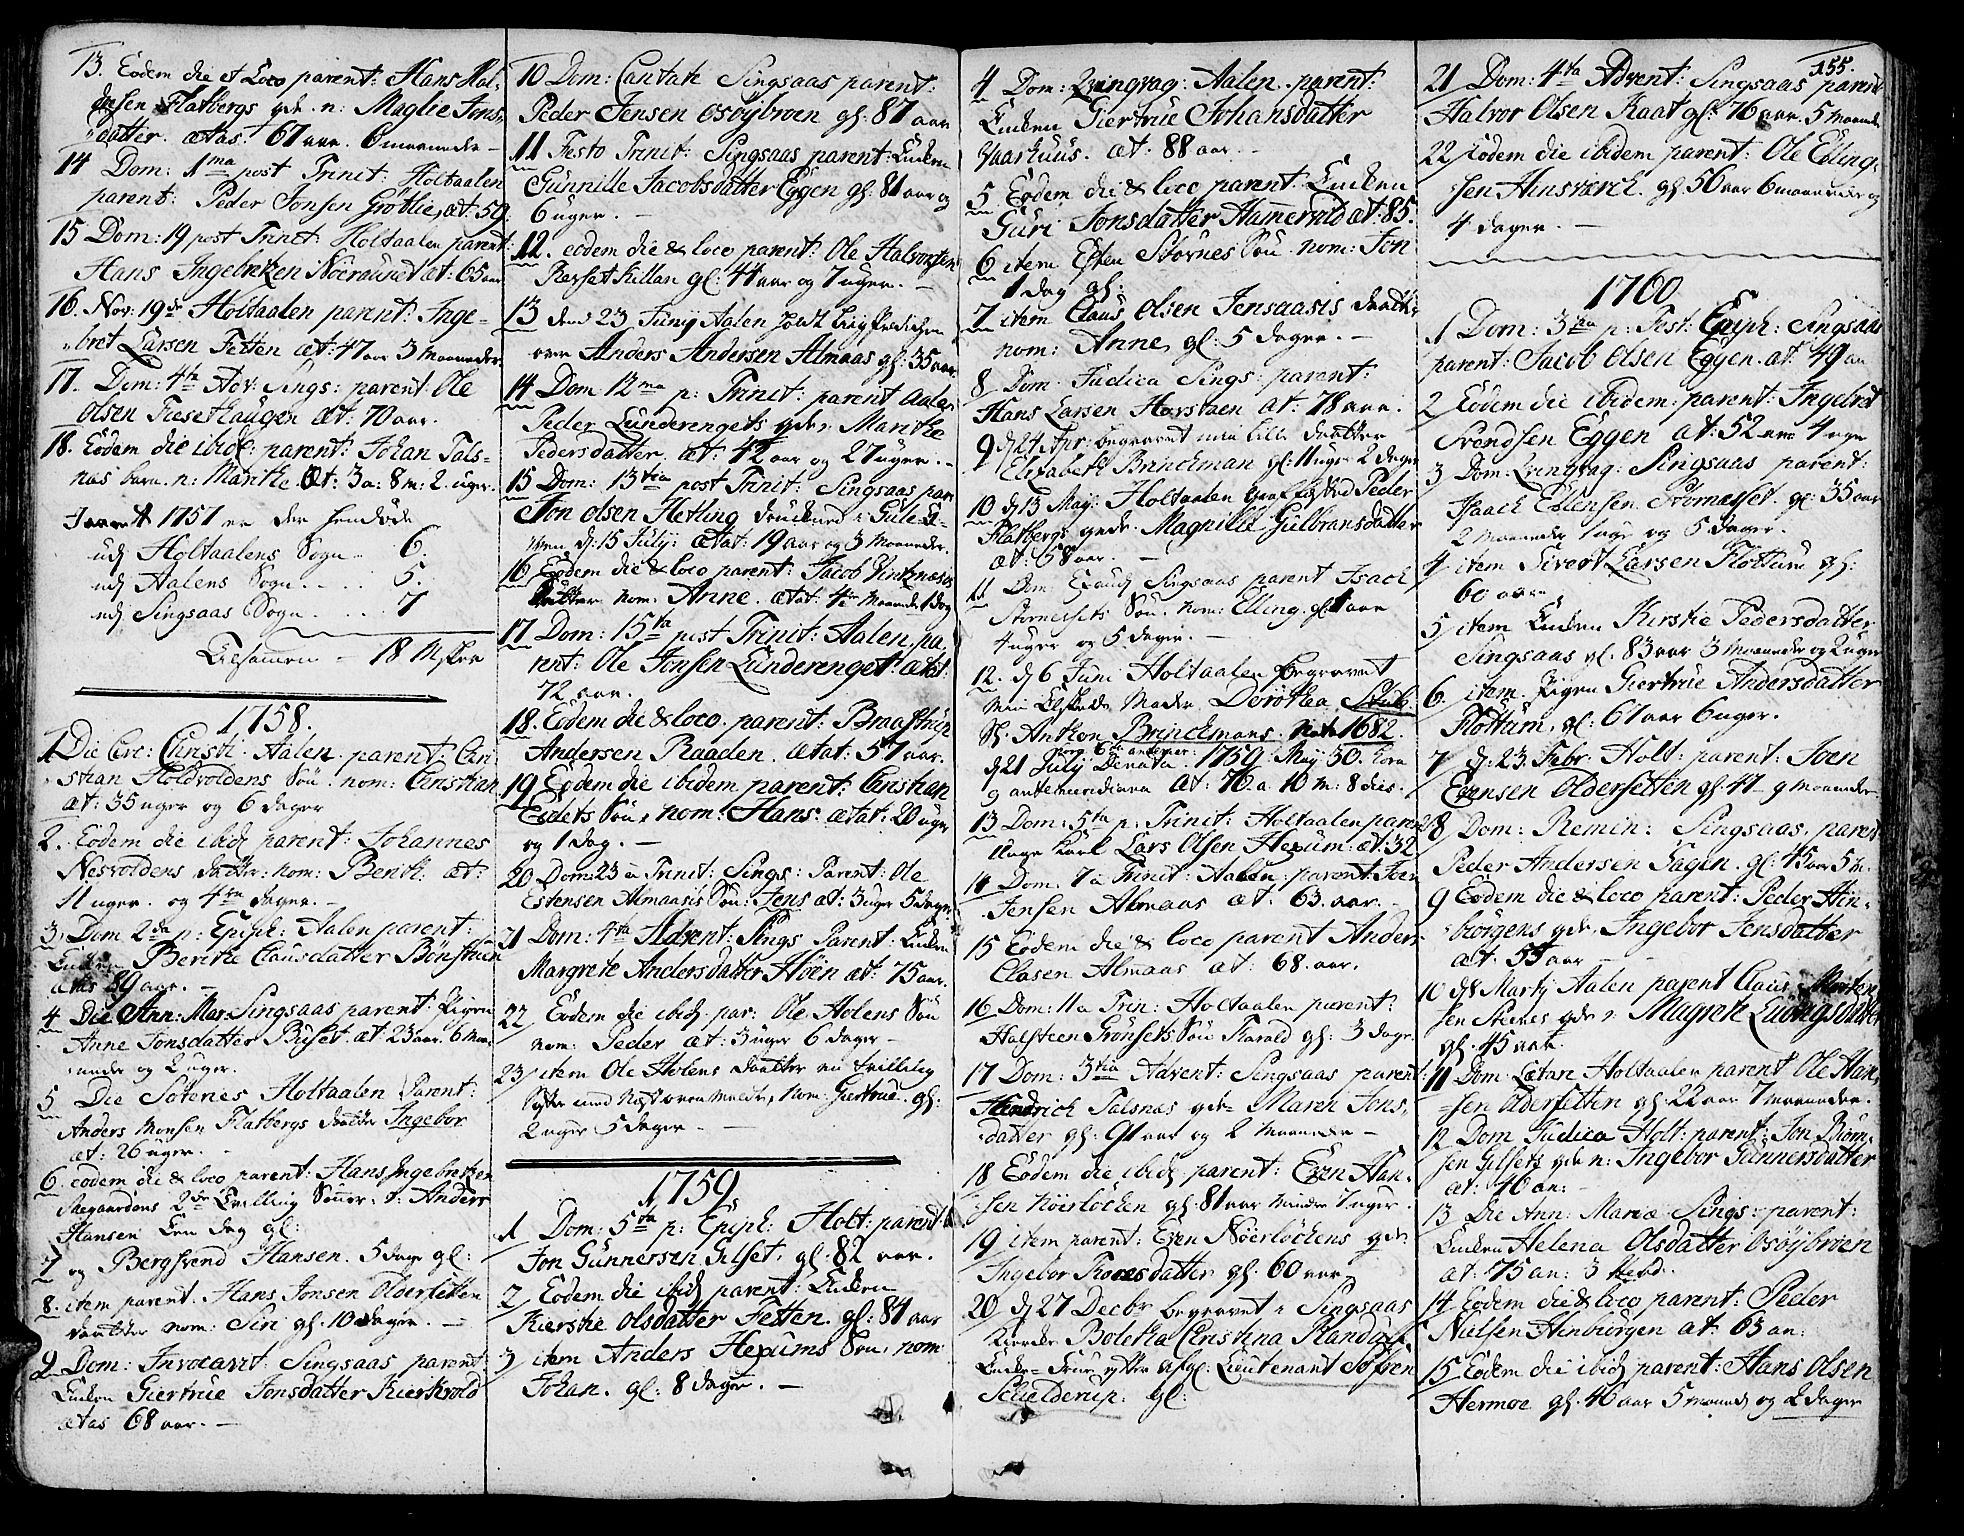 13. Eodem die et Loco parent: Hans Hal-
dorsen Flatbergs qde. n: Maglie Jons-
datter. ætas: 67 aar. 6 maaneder -
14 Dom: 1ma post Trinit: Holtaalen
parent: Peder Jonsen Grotlie, æt: 59.
15 Dom: 19 post Trinit: Holtaalen parent:
Hans Ingebretzen Noeraunet æt: 65 aar
16. Nov: 19de Holtaalen parent: Inge-
bret Larsen Fetten æt: 47 aar 3 maaneder
17. Dom: 4te Adv: Sings: parent: Ole
Olsen Fieset haugen æt: 70 aar.
18. Eodem die ibid: parent: Johan Tals-
nes barn. n: Maritte. æt: 3 a: 8 m: 2. uger.
1757 er der hendöde
udj Holtaalens Sogn - 6.
udj Aalens Sogn . . . 5.
udj Singsaas Sogn . . . 7
Tilsamen - 18 Msker
1758.
1 Die Circ: Christi. Aalen parent: Chri-
stian Holdvoldens Sön. nom: Christian
æt: 35 uger og 6 dager
2. Eodem die ibid parent: Johannes
Nesvoldens datter. nom: Berit. æt:
11 uger. og 4 dager. -
3 Dom 2da p: Epiph: Aalen parent:
Enken Beritte Clausdatter Bönstuen
ætas 89 aar. -
4 Die Ann: Mar: Singsaas parent: Pigen
Anne Jonsdatter Buset æt 23 aar. 6 maa-
neder og 2 uger.
5 Die Solenes Holtaalen Parent:
Anders Monsen Flatbergs daatter Ingebor
æt: 26 uger. -
6. eodem die & loco parent: Hans Ingebretzen
2de Tvilling Sönner. n: Anders
Hansen Een dag gl:
7 og Bergsvend Hansen. 5 dage gl:
8. item parent. Hans Jonsen Oldersetten
daatter nom: Siri gl: 10 dager. -
9 Dom: Invocavit: Singsaas parent
Enken Giertrue Jonsdatter Kierkvold
ætas 68 aar. -
10 Dom: Cantate Singsaas parent:
Peder Jensen Osöybroen gl: 87 aar
11 Festo Trinit: Singsaas parent: Enken
Gunnille Jacobsdatter Eggen gl: 81 aar og
6 uger. -
12. eodem die & loco parent: Ole Halvorsen
Refset gl: 44 aar og 7 uger. -
13 den 23 Junij Aalen holdt ligprediken
over Anders Andersen Almaas gl: 35 aar.
14 Dom 12ma p: Trinit: parent Aalen
Peder Lunderengets qde: Maritte
Pedersdatter. æt: 42 aar og 27 uger. -
15 Dom: 13tia post Trinit: Singsaas par
Jon Olsen Hetling druknede i Gule El-
ven d. 15 July: ætat: 19 aar og 3 maaneder.
16 Eodem die & loco parent: Jacob
datter nom: Anne. ætat: 4 maaneder 1 dag
17 Dom: 15ta post Trinit: Aalen, pa-
rent: Ole Jonsen Lunderenget. ætat:
72 aar.
18. Eodem die & loco. parent: Braastrup
Andersen Raaden. ætat: 57 aar.
19 Eodem die ibidem parent: Christian
Eidets Sön, nom: Hans: ætat: 20 uger
og 1 dag. -
20 Dom: 23 a Trinit: Sings: Parent: Ole
Estensen Almaasis Sön: Jens æt: 3 uger 5 dager
21 Dom: 4ta Advent: Sings Parent: Enken
Margrete Anders datter Höen æt: 75 aar.
22 Eodem die ibid: par: Ole Holens Sön
nom: Peder æt: 3 uger 6 dager -
23 item Ole Holens daatter en trilling
Syster med nom: Giertrue. gl:
2 uger 5 dager - -
1759.
1 Dom: 5ta p: Epiph: Holt: parent:
Jon Gunnersen Gilset, gl: 82 aar.
2 Eodem die ibid parent: Enken
Kierstie Olsdatter Fetten. gl: 84 aar
3 item Anders Hexums Sön, nom:
Johan. gl: 8 dager. -
4 Dom: Qvinqvag: Aalen. parent:
Enken Giertrue Johansdatter
Gaarhuus. æt: 88 aar. -
5 Eodem die & loco parent. Enken
Guri Jonsdatter Hammervold æt: 85.
6 item Esten Störnes Sön. nom: Jon
1 dag gl:
7 item Claus Olsen Jensaasis daatter
nom: Anne, gl: 5 dager. -
8 Dom. Judica Sings: parent:
Hans Larsen Havstaen æt: 78 aar.
9 d 24 Apr: begravet min lille daatter
Elisabeth Brinckman gl: 11 uger 2 dager
10 d 13 Maj: Holtaalen Peder
Flatbergs qvde. Magnille Gulbransdatter
æt: 58 aar. -
11 Dom: Exaudj Singsaas parent Isach
Störresets Sön. nom: Elling. gl: 1 aar
4 uger og 5 dager. -
12. d 6 Juni Holtaalen begravet
min Elskede Moder Dorothea Stub,
Sl: Anthon Brinckmans. Nata 1682.
d 21 July Denata. 1759. Maj 30. hora
9 antemeridiana æt: 76. a. 10 m: 8 dies.
13 Dom: 5ta p: Trinit: Holtaalen parent
unge Karl Lars Olsen Hexum. æt: 32
14 Dom. 7 a Trinit: Aalen. parent: Joen
Jensen Almaas æt: 63. aar. -
15 Eodem die & loco parent Anders
Clasen Almaas æt: 68. aar.
16 Dom: 11 a Trin: Holtaalen parent:
Halsteen Grönsets Sön Harald gl: 3 dage.
17 Dom: 3tia Advent: Singsaas parent:
Hendrich Talsnæs qde: Maren Jons-
datter gl: 91 aar og 2 maaneder -
18 Eodem die ibid parent: Even Han-
sen Nöerlöcken gl: 81 aar mindre 7 uger.
19 item parent: Even Nöerlöckens qde:
Ingebor Toresdatter gl. 60 aar.
20 d 27 Decbr begravet i Singsaas
Kierke Boletha Christina Randulf
Enke-Frue efter afgl: Lieutenant Söfren
Schielderup: gl:
155.
21 Dom: 4ta Advent: Singsaas parent
Halvor Olsen Kaat gl: 76 aar. 5 maaneder
22 Eodem die ibidem parent: Ole Elling-
sen Hinsværck. gl: 50 aar 6 maaneder og
4 dager. -
1760
1 Dom: 3tia p: Fest: Epiph: Singsaas
parent: Jacob Olsen Eggen. æt 49 an
2 Eodem die ibidem: parent: Ingebret
Svendsen Eggen æt: 52 aar 4 uger
3 Dom: Qvinqvag: Singsaas parent:
Isach Ellensen Störreset. gl: 35 aar
2 maaneder 1 uge og 5 dager.
4 item Sivert Larsen Flottum gl:
60 aar.
5 item Enken Kirstie Pedersdatter
Singsaas gl. 83 aar 3 maaneder og 2 uger
6. item. Pigen Giertrue Andersdatter
Flottum, gl: 61 aar 6 uger.
7 d. 23. Febr: Holt: parent: Joen
Evensen Oldersetten gl: 41 - 9 maaneder
8 Dom: Remin: Singsaas, parent
Peder Andersen Hagen. gl: 45 aar 5 m:
9 Eodem die & loco parent: Peder Hin-
börgens qde, Ingebor Jensdatter
æt: 55 aar - -
10 d 8 Martj Aalen parent Claus Morten-
sen qde n: Magrete Ludvigsdatter
gl: 45 aar.
11 Dom: Lætare Holtaalen parent Ole Han-
sen Oldersetten gl: 22 aar 7 maaneder.
12 Dom Judica Holt: parent: Jon Biörn-
sen Gilsets qde n: Ingebor Gunnersdatter
æt: 40 an: -
13 Die Ann: Mariæ Sings: parent:
Enken Helena Olsdatter Osöybroen
æt: 75 an: 3 hebd.
14 Eodem die & loco parent: Peder
Nielsen Henbörgen æt: 63 an:
15 Eodem die ibid parent: Hans Olsen
Hermoe gl: 46 aar 5 maaneder og 2 dager